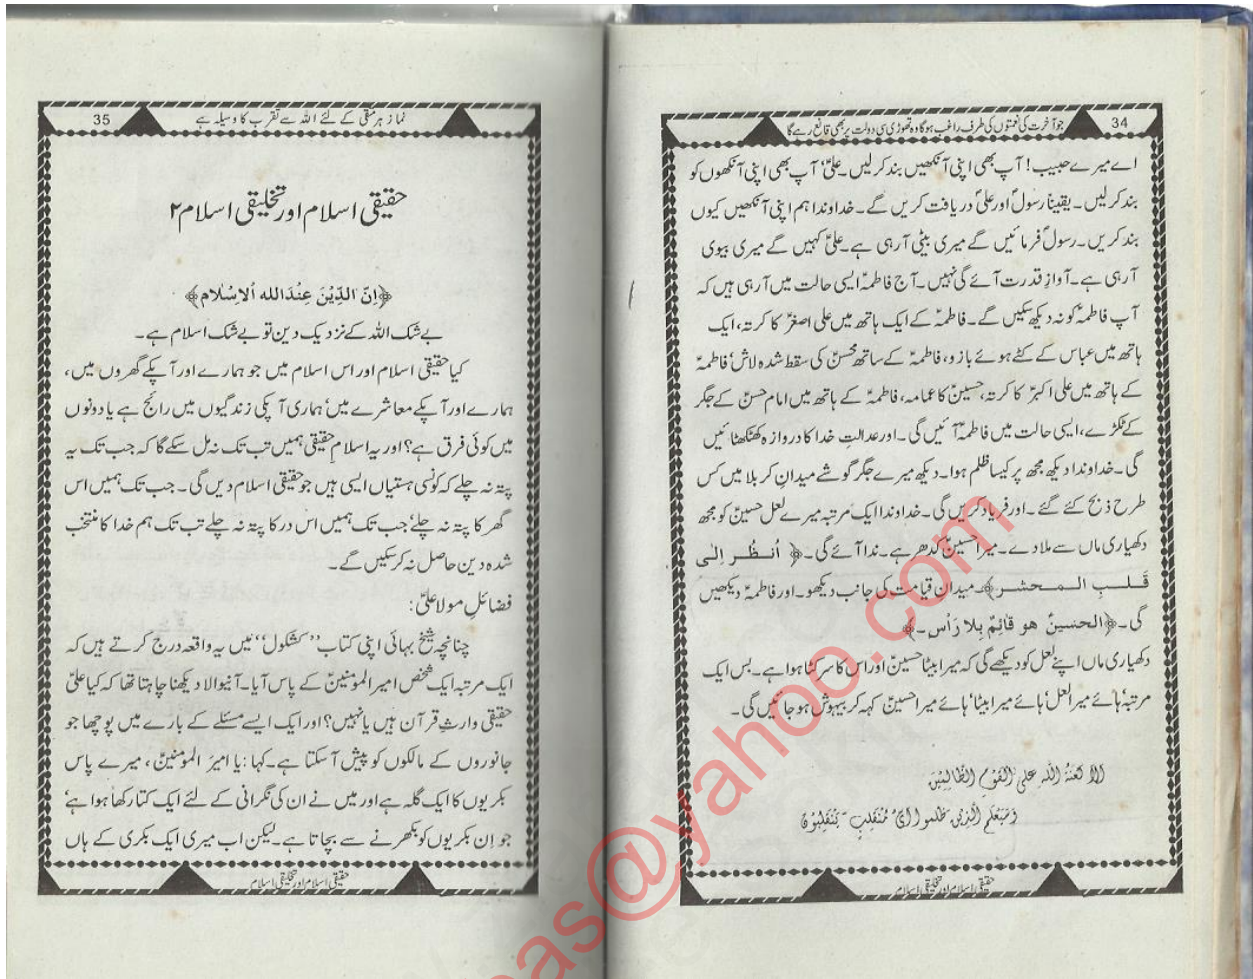 34
جو آخرت کی نعمتوں کی طرف راغب ہوگا وہ تھوڑی سی دولت پر بھی قانع رہے گا
اے میرے حبیب! آپ بھی اپنی آنکھیں بند کر لیں۔ علیؑ' آپ بھی اپنی آنکھوں کو
بند کر لیں۔ یقیناً رسولؐ اور علیؑ دریافت کریں گے۔ خداوندا ہم اپنی آنکھیں کیوں
بند کریں۔ رسولؐ فرمائیں گے میری بیٹی آ رہی ہے۔ علیؑ کہیں گے میری بیوی
آ رہی ہے۔ آوازِ قدرت آئے گی نہیں۔ آج فاطمہؑ ایسی حالت میں آ رہی ہیں کہ
آپ فاطمہؑ کو نہ دیکھ سکیں گے۔ فاطمہؑ کے ایک ہاتھ میں علی اصغرؑ کا کرتہ، ایک
ہاتھ میں عباس کے کٹے ہوئے بازو، فاطمہؑ کے ساتھ محسنؑ کی سقط شدہ لاش' فاطمہؑ
کے ہاتھ میں علی اکبرؑ کا کرتہ، حسینؑ کا عمامہ، فاطمہؑ کے ہاتھ میں امام حسنؑ کے جگر
کے ٹکڑے، ایسی حالت میں فاطمہؑ آئیں گی۔ اور عدالتِ خدا کا دروازہ کھٹکھٹائیں
گی۔ خداوندا دیکھ مجھ پر کیسا ظلم ہوا۔ دیکھ میرے جگر گوشے میدانِ کربلا میں کس
طرح ذبح کئے گئے۔ اور فریاد کریں گی۔ خداوندا ایک مرتبہ میرے لعل حسینؑ کو مجھ
دکھیاری ماں سے ملا دے۔ میرا حسینؑ کدھر ہے۔ ندا آئے گی۔ ﴿ اُنظُر اِلٰی
قَلبِ المحشر﴾۔ میدان قیامت کی جانب دیکھو۔ اور فاطمہؑ دیکھیں
گی۔ ﴿الحسینؑ هو قائِمٌ بِلا رَأس۔﴾
دکھیاری ماں اپنے لعل کو دیکھے گی کہ میرا بیٹا حسینؑ اور اس کا سر کٹا ہوا ہے۔ بس ایک
مرتبہ' ہائے میرا لعل' ہائے میرا بیٹا' ہائے میرا حسینؑ کہہ کر بیہوش ہو جائیں گی۔
الا لَعنَةُ اللهِ عَلَی القَومِ الظّالِمِینَ
وَسَیَعلَم الَّذِینَ ظَلَموا اَیَّ مُنقَلِبٍ یَنقَلِبُونَ
حقیقی اسلام اور تخلیقی اسلام
35
نماز ہر متقی کے لئے اللہ سے تقرب کا وسیلہ ہے
حقیقی اسلام اور تخلیقی اسلام ۲
﴿اِنّ الدِّیْنَ عِنْدَالله الاِسْلام﴾
بے شک اللہ کے نزدیک دین تو بے شک اسلام ہے۔
کیا حقیقی اسلام اور اس اسلام میں جو ہمارے اور آپکے گھروں میں،
ہمارے اور آپکے معاشرے میں' ہماری آپکی زندگیوں میں رائج ہے یا دونوں
میں کوئی فرق ہے؟ اور یہ اسلامِ حقیقی ہمیں تب تک نہ مل سکے گا کہ جب تک یہ
پتہ نہ چلے کہ کونسی ہستیاں ایسی ہیں جو حقیقی اسلام دیں گی۔ جب تک ہمیں اس
گھر کا پتہ نہ چلے' جب تک ہمیں اس در کا پتہ نہ چلے تب تک ہم خدا کا منتخب
شدہ دین حاصل نہ کر سکیں گے۔
فضائلِ مولا علیؑ:
چنانچہ شیخ بہائی اپنی کتاب ''کشکول'' میں یہ واقعہ درج کرتے ہیں کہ
ایک مرتبہ ایک شخص امیر المومنینؑ کے پاس آیا۔ آنیوالا دیکھنا چاہتا تھا کہ کیا علیؑ
حقیقی وارثِ قرآن ہیں یا نہیں؟ اور ایک ایسے مسئلے کے بارے میں پوچھا جو
جانوروں کے مالکوں کو پیش آ سکتا ہے۔ کہا: یا امیر المومنینؑ، میرے پاس
بکریوں کا ایک گلہ ہے اور میں نے ان کی نگرانی کے لئے ایک کتا رکھا ہوا ہے'
جو اِن بکریوں کو بکھرنے سے بچاتا ہے۔ لیکن اب میری ایک بکری کے ہاں
حقیقی اسلام اور تخلیقی اسلام
eas@yahoo.com